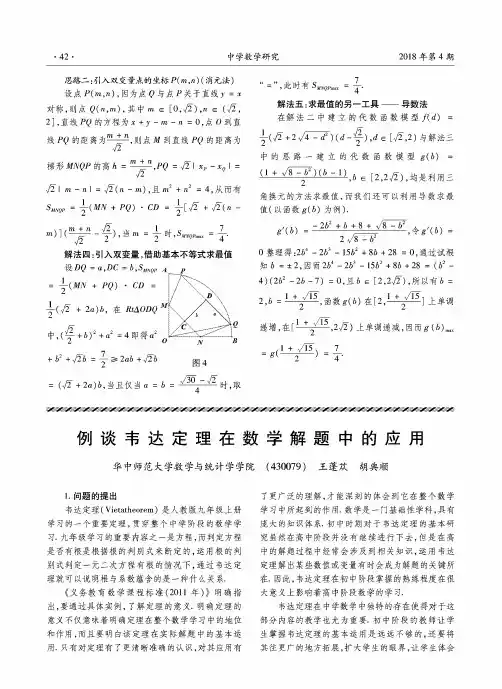 ·42· 中学数学研究 2018年第4期
思路二:引入双变量点的坐标P(m,n)(消元法)
设点P(m,n),因为点Q与点P关于直线y = x
对称,则点Q(n,m),其中m∈[0,√2),n∈(√2,
2],直线PQ的方程为x + y - m - n = 0,点O到直
线PQ的距离为(m + n)/√2,则点M到直线PQ的距离为
梯形MNQP的高h = (m + n)/√2,PQ = √2 | x_P - x_Q | =
√2 | m - n | = √2(n - m),且m² + n² = 4,从而有
S_MNQP = 1/2(MN + PQ)·CD = 1/2[√2 + √2(n -
m)]((m + n)/√2 - √2/2),当m = 1/2时,S_MNQPmax = 7/4.
解法四:引入双变量,借助基本不等式求最值
设DQ = a,DC = b,S_MNQP
= 1/2(MN + PQ)·CD =
1/2(√2 + 2a)b, 在Rt△ODQ
中,(√2/2 + b)² + a² = 4即得a²
+ b² + √2b = 7/2 ≥ 2ab + √2b
A P D M C a b Q O N B
图4
= (√2 + 2a)b,当且仅当a = b = (√30 - √2)/4时,取
“=”,此时有S_MNQPmax = 7/4.
解法五:求最值的另一工具——导数法
在解法二中建立的代数函数模型f(d) =
1/2(√2 + 2√(4 - d²))(d - √2/2),d∈[√2,2)与解法三
中的思路一建立的代数函数模型g(b) =
(1 + √(8 - b²))(b - 1)/2,b∈[2,2√2),均是利用三
角换元的方法求最值,而我们还可以利用导数求最
值(以函数g(b)为例).
g'(b) = (-2b² + b + 8 + √(8 - b²))/(2√(8 - b²)),令g'(b) =
0整理得:2b⁴ - 2b³ - 15b² + 8b + 28 = 0,通过试根
知b = ±2,因而2b⁴ - 2b³ - 15b² + 8b + 28 = (b² -
4)(2b² - 2b - 7) = 0,且b∈[2,2√2),所以有b =
2,b = (1 + √15)/2,函数g(b)在[2,(1 + √15)/2]上单调
递增,在[(1 + √15)/2,2√2)上单调递减,因而g(b)max
= g((1 + √15)/2) = 7/4.
例谈韦达定理在数学解题中的应用
华中师范大学数学与统计学学院 (430079) 王蓬欢 胡典顺
1.问题的提出
韦达定理(Vietatheorem)是人教版九年级上册
学习的一个重要定理,贯穿整个中学阶段的数学学
习.九年级学习的重要内容之一是方程,而判定方程
是否有根是根据根的判别式来断定的,运用根的判
别式判定一元二次方程有根的情况下,通过韦达定
理就可以说明根与系数蕴含的是一种什么关系.
《义务教育数学课程标准(2011年)》明确指
出,要通过具体实例,了解定理的意义.明确定理的
意义不仅意味着明确定理在整个数学学习中的地位
和作用,而且要明白该定理在实际解题中的基本运
用.只有对定理有了更清晰准确的认识,对其应用有
了更广泛的理解,才能深刻的体会到它在整个数学
学习中所起到的作用.数学是一门基础性学科,具有
庞大的知识体系.初中时期对于韦达定理的基本研
究虽然在高中阶段并没有继续进行下去,但是在高
中的解题过程中经常会涉及到相关知识,运用韦达
定理解出某些数值或变量有时会成为解题的关键所
在.因此,韦达定理在初中阶段掌握的熟练程度在很
大意义上影响着高中阶段数学的学习.
韦达定理在中学数学中独特的存在使得对于这
部分内容的教学也尤为重要.初中阶段的教师让学
生掌握韦达定理的基本运用是远远不够的,还要将
其往更广的地方拓展,扩大学生的眼界,让学生体会